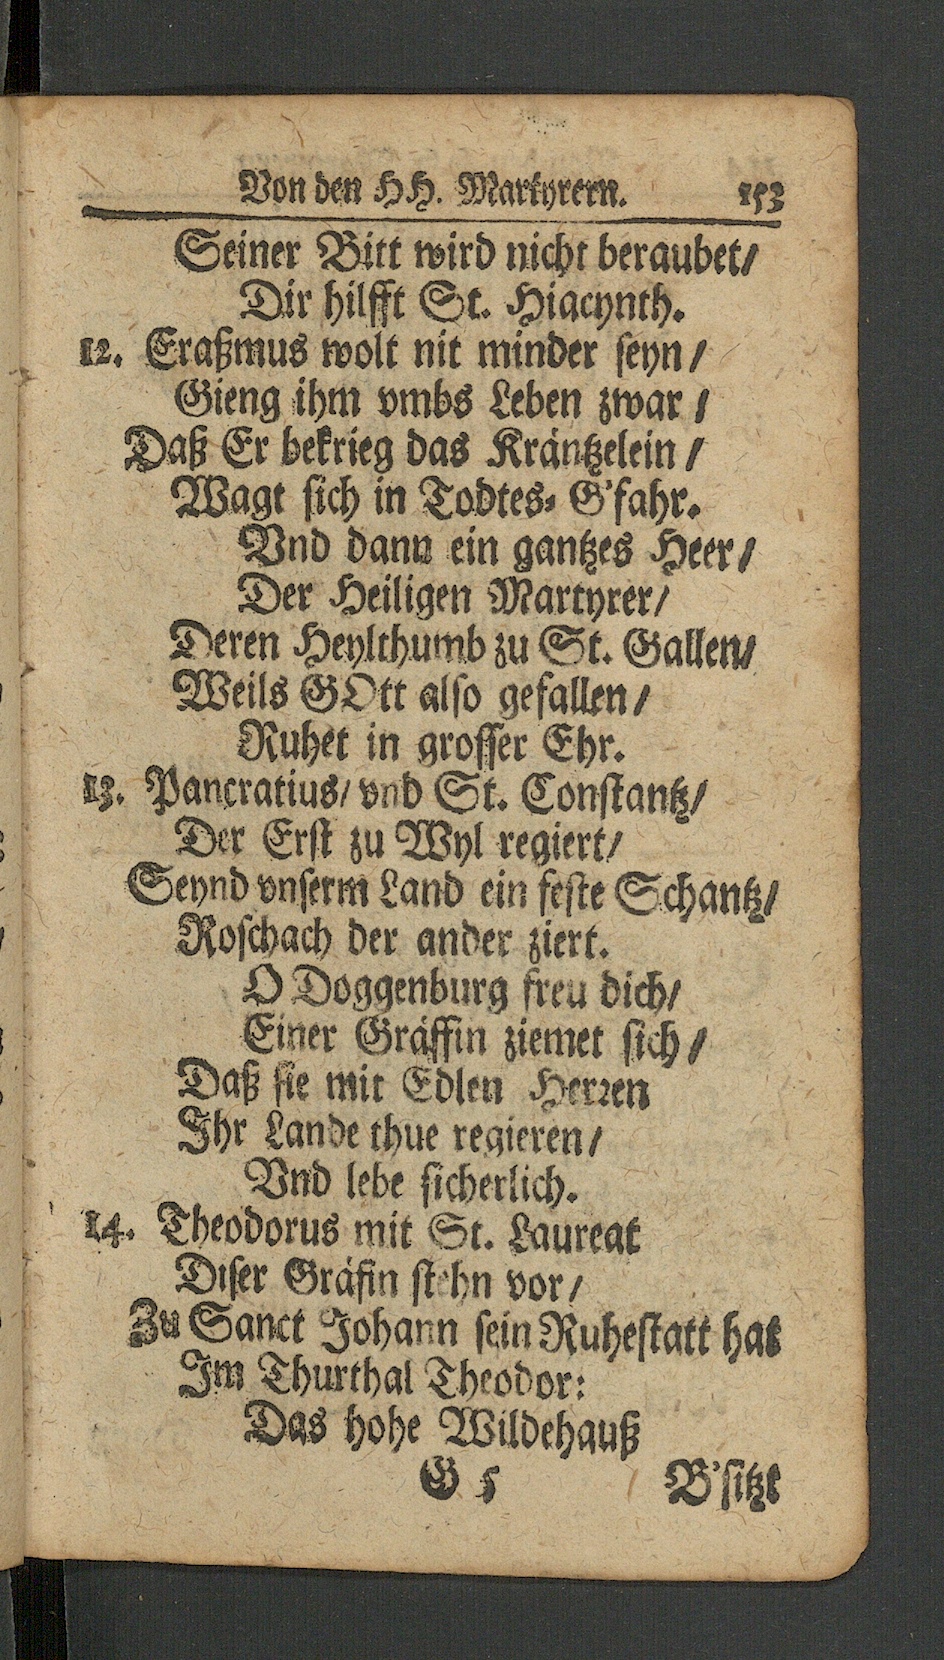 Von den HH. Martyrern. 153
Seiner Bitt wird nicht beraubet/
Dir hilfft St. Hiacynth.
12. Eraßmus wolt nit minder seyn/
Gieng ihm vmbs Leben zwar/
Daß Er bekrieg das Kräntzelein/
Wagt sich in Todtes- G'fahr.
Vnd dann ein gantzes Heer/
Der Heiligen Martyrer/
Deren Heylthumb zu St. Gallen/
Weils GOtt also gefallen/
Ruhet in grosser Ehr.
13. Pancratius/ vnd St. Constantz/
Der Erst zu Wyl regiert/
Seynd vnserm Land ein feste Schantz/
Roschach der ander ziert.
O Doggenburg freu dich/
Einer Gräffin ziemet sich/
Daß sie mit Edlen Herren
Ihr Lande thue regieren/
Vnd lebe sicherlich.
14. Theodorus mit St. Laureat
Diser Gräfin stehn vor/
Zu Sanct Johann sein Ruhestatt hat
Im Thurthal Theodor:
Das hohe Wildehauß
G 5 B'sitzt